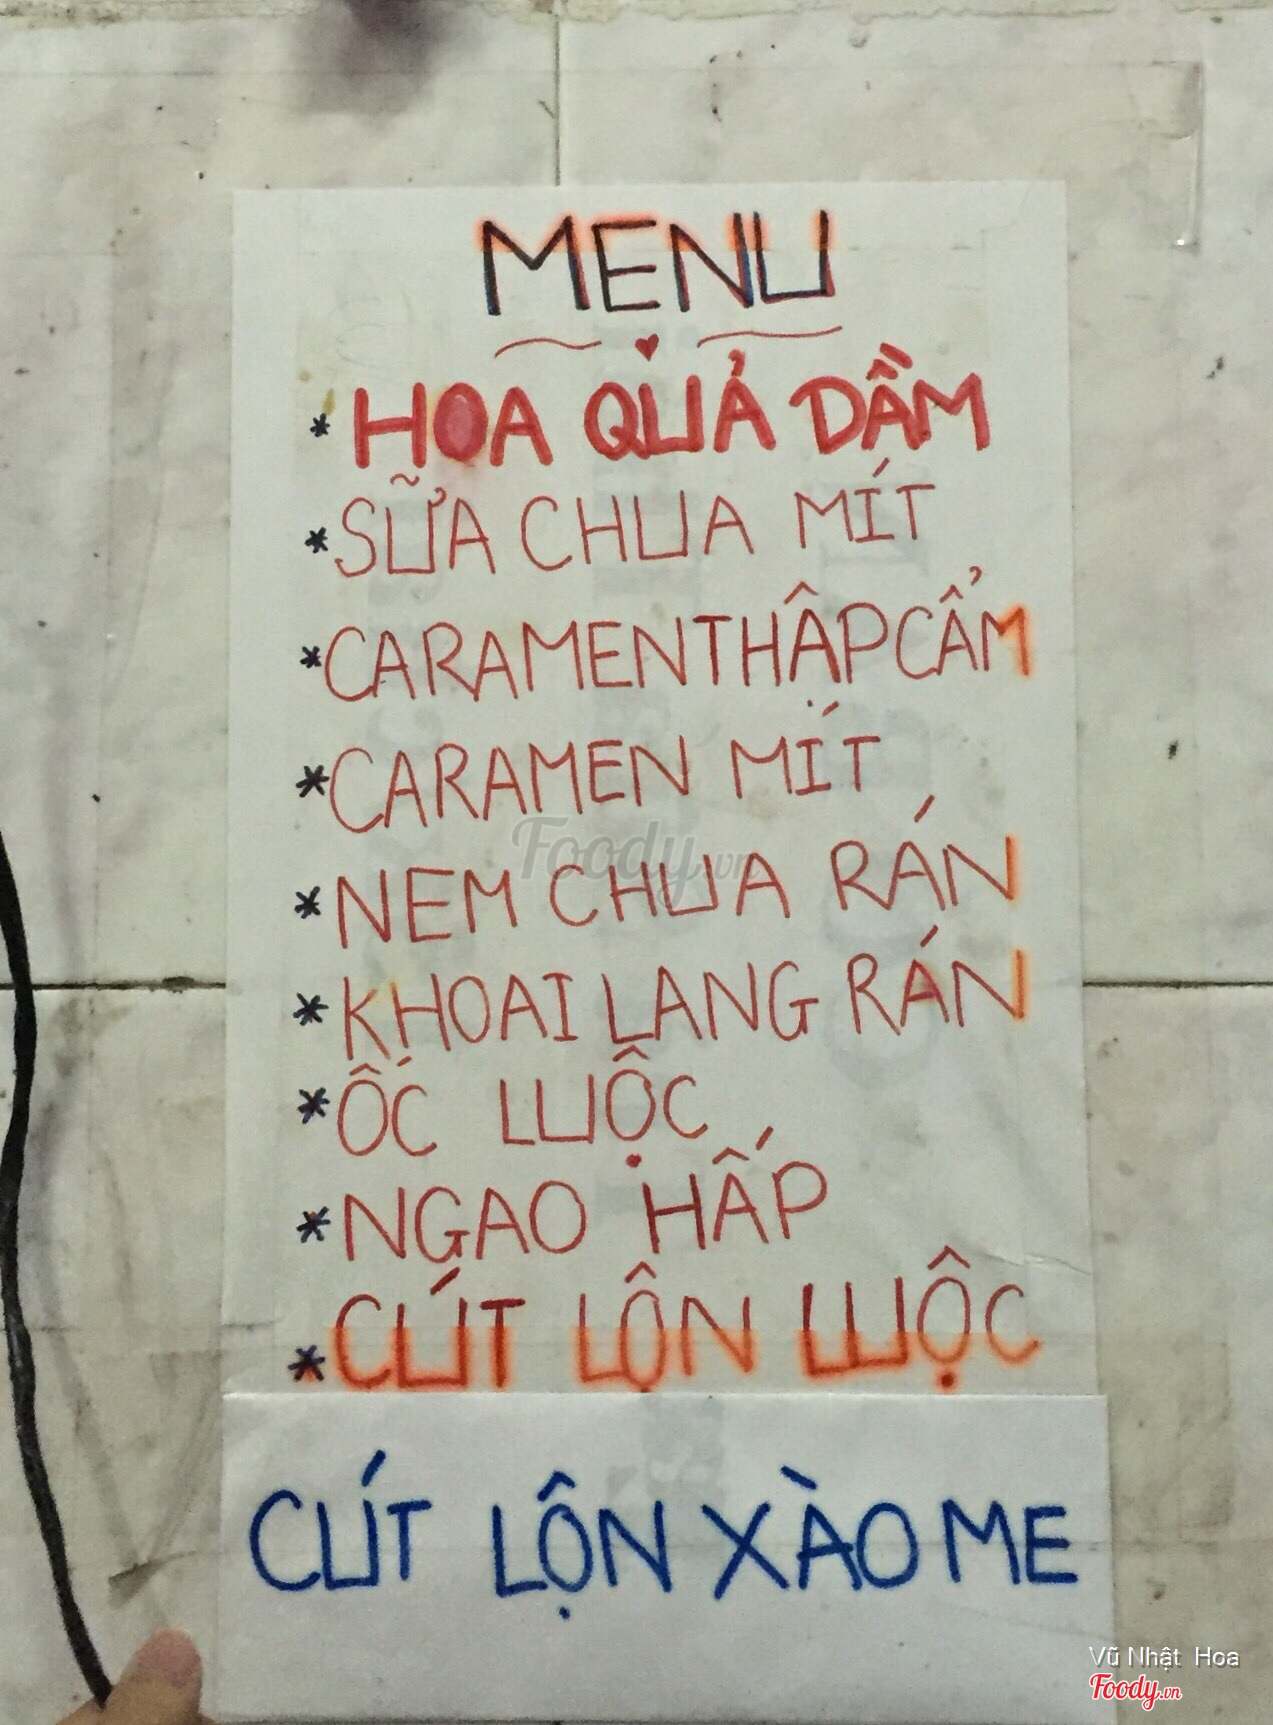 MENU
* HOA QUẢ DẦM
* SỮA CHUA MÍT
* CARAMEN THẬP CẨM
* CARAMEN MÍT
* NEM CHUA RÁN
* KHOAI LANG RÁN
* ỐC LUỘC
* NGAO HẤP
* CÚT LỘN LUỘC
CÚT LỘN XÀO ME
Foody.vn
Vũ Nhật Hoa
Foody.vn